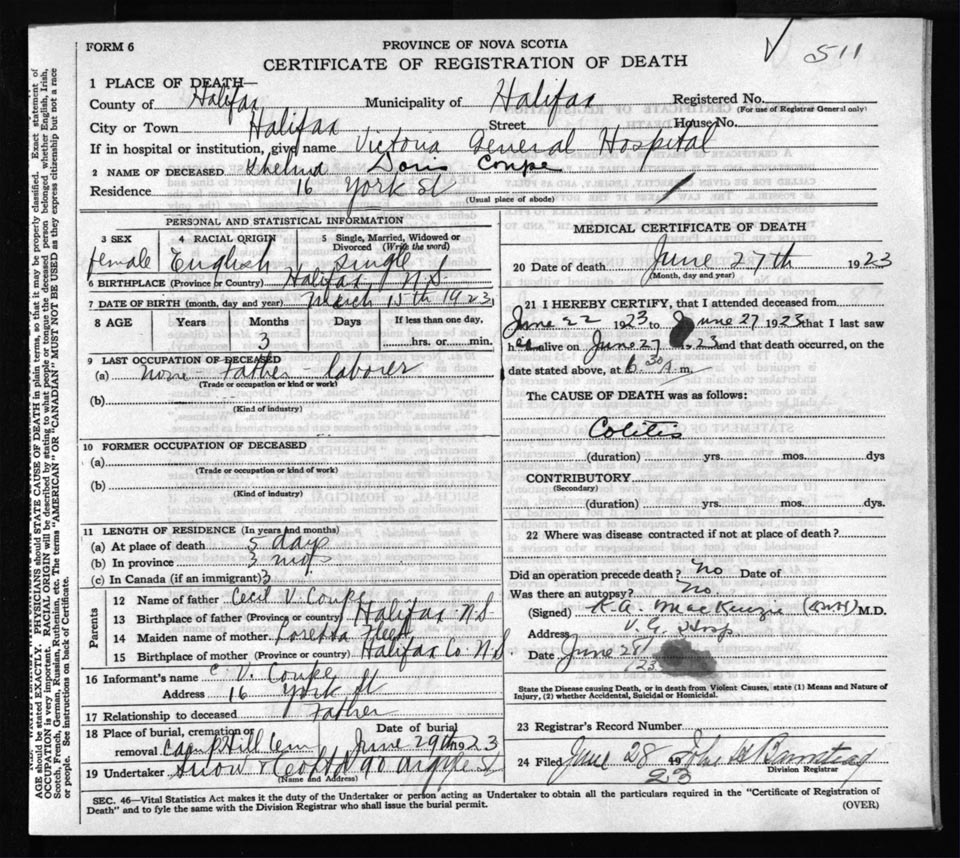 511
FORM 6
PROVINCE OF NOVA SCOTIA
CERTIFICATE OF REGISTRATION OF DEATH
1 PLACE OF DEATH—
County of Halifax Municipality of Halifax Registered No.
(For use of Registrar General only)
City or Town Halifax Street House No.
If in hospital or institution, give name Victoria General Hospital
2 NAME OF DECEASED Thelma Doris Coupe
Residence 16 York St
(Usual place of abode)
PERSONAL AND STATISTICAL INFORMATION
3 SEX 4 RACIAL ORIGIN 5 Single, Married, Widowed or Divorced (Write the word)
female English Single
6 BIRTHPLACE (Province or Country) Halifax N.S.
7 DATE OF BIRTH (month, day and year) March 15th 1923
8 AGE Years Months Days If less than one day,
3 hrs. or min.
9 LAST OCCUPATION OF DECEASED
(a) none - Father - laborer
(Trade or occupation or kind or work)
(b)
(Kind of industry)
10 FORMER OCCUPATION OF DECEASED
(a)
(Trade or occupation or kind or work)
(b)
(Kind of industry)
11 LENGTH OF RESIDENCE (In years and months)
(a) At place of death 5 days
(b) In province 3 mos
(c) In Canada (if an immigrant) 3
Parents
12 Name of father Cecil V. Coupe
13 Birthplace of father (Province or country) Halifax N.S
14 Maiden name of mother Loretta Fleet
15 Birthplace of mother (Province or country) Halifax Co N.S
16 Informant's name C V. Coupe
Address 16 York St
17 Relationship to deceased Father
18 Place of burial, cremation or Date of burial
removal Camp Hill Cem June 29th 1923
19 Undertaker Snow & Co Ltd 90 Argyle St
(Name and Address)
MEDICAL CERTIFICATE OF DEATH
20 Date of death June 27th 1923
(Month, day and year)
21 I HEREBY CERTIFY, that I attended deceased from
June 22 1923 to June 27 1923 that I last saw
her alive on June 27 1923 and that death occurred, on the
date stated above, at 6.30 A.m.
The CAUSE OF DEATH was as follows:
Colitis
(duration) yrs. mos. dys
CONTRIBUTORY
(Secondary)
(duration) yrs. mos. dys.
22 Where was disease contracted if not at place of death?
Did an operation precede death? No Date of
Was there an autopsy? No
(Signed) K.A. MacKenzie M.D.
Address V.G. Hosp
Date June 28 23
State the Disease causing Death, or in death from Violent Causes, state (1) Means and Nature of
Injury, (2) whether Accidental, Suicidal or Homicidal.
23 Registrar's Record Number
24 Filed June 28 19 23
Division Registrar
SEC. 46—Vital Statistics Act makes it the duty of the Undertaker or person acting as Undertaker to obtain all the particulars required in the "Certificate of Registration of
Death" and to fyle the same with the Division Registrar who shall issue the burial permit.
(OVER)
AGE should be stated EXACTLY. PHYSICIANS should STATE CAUSE OF DEATH in plain terms, so that it may be properly classified. Exact statement of
OCCUPATION is very important. RACIAL ORIGIN will be described by stating to what people or tongue the deceased person belonged whether English, Irish,
Scotch, French, German, Russian, Ruthenian, etc. The terms "AMERICAN" OR "CANADIAN" MUST NOT BE USED as they express citizenship but not a race
or people. See instructions on back of Certificate.